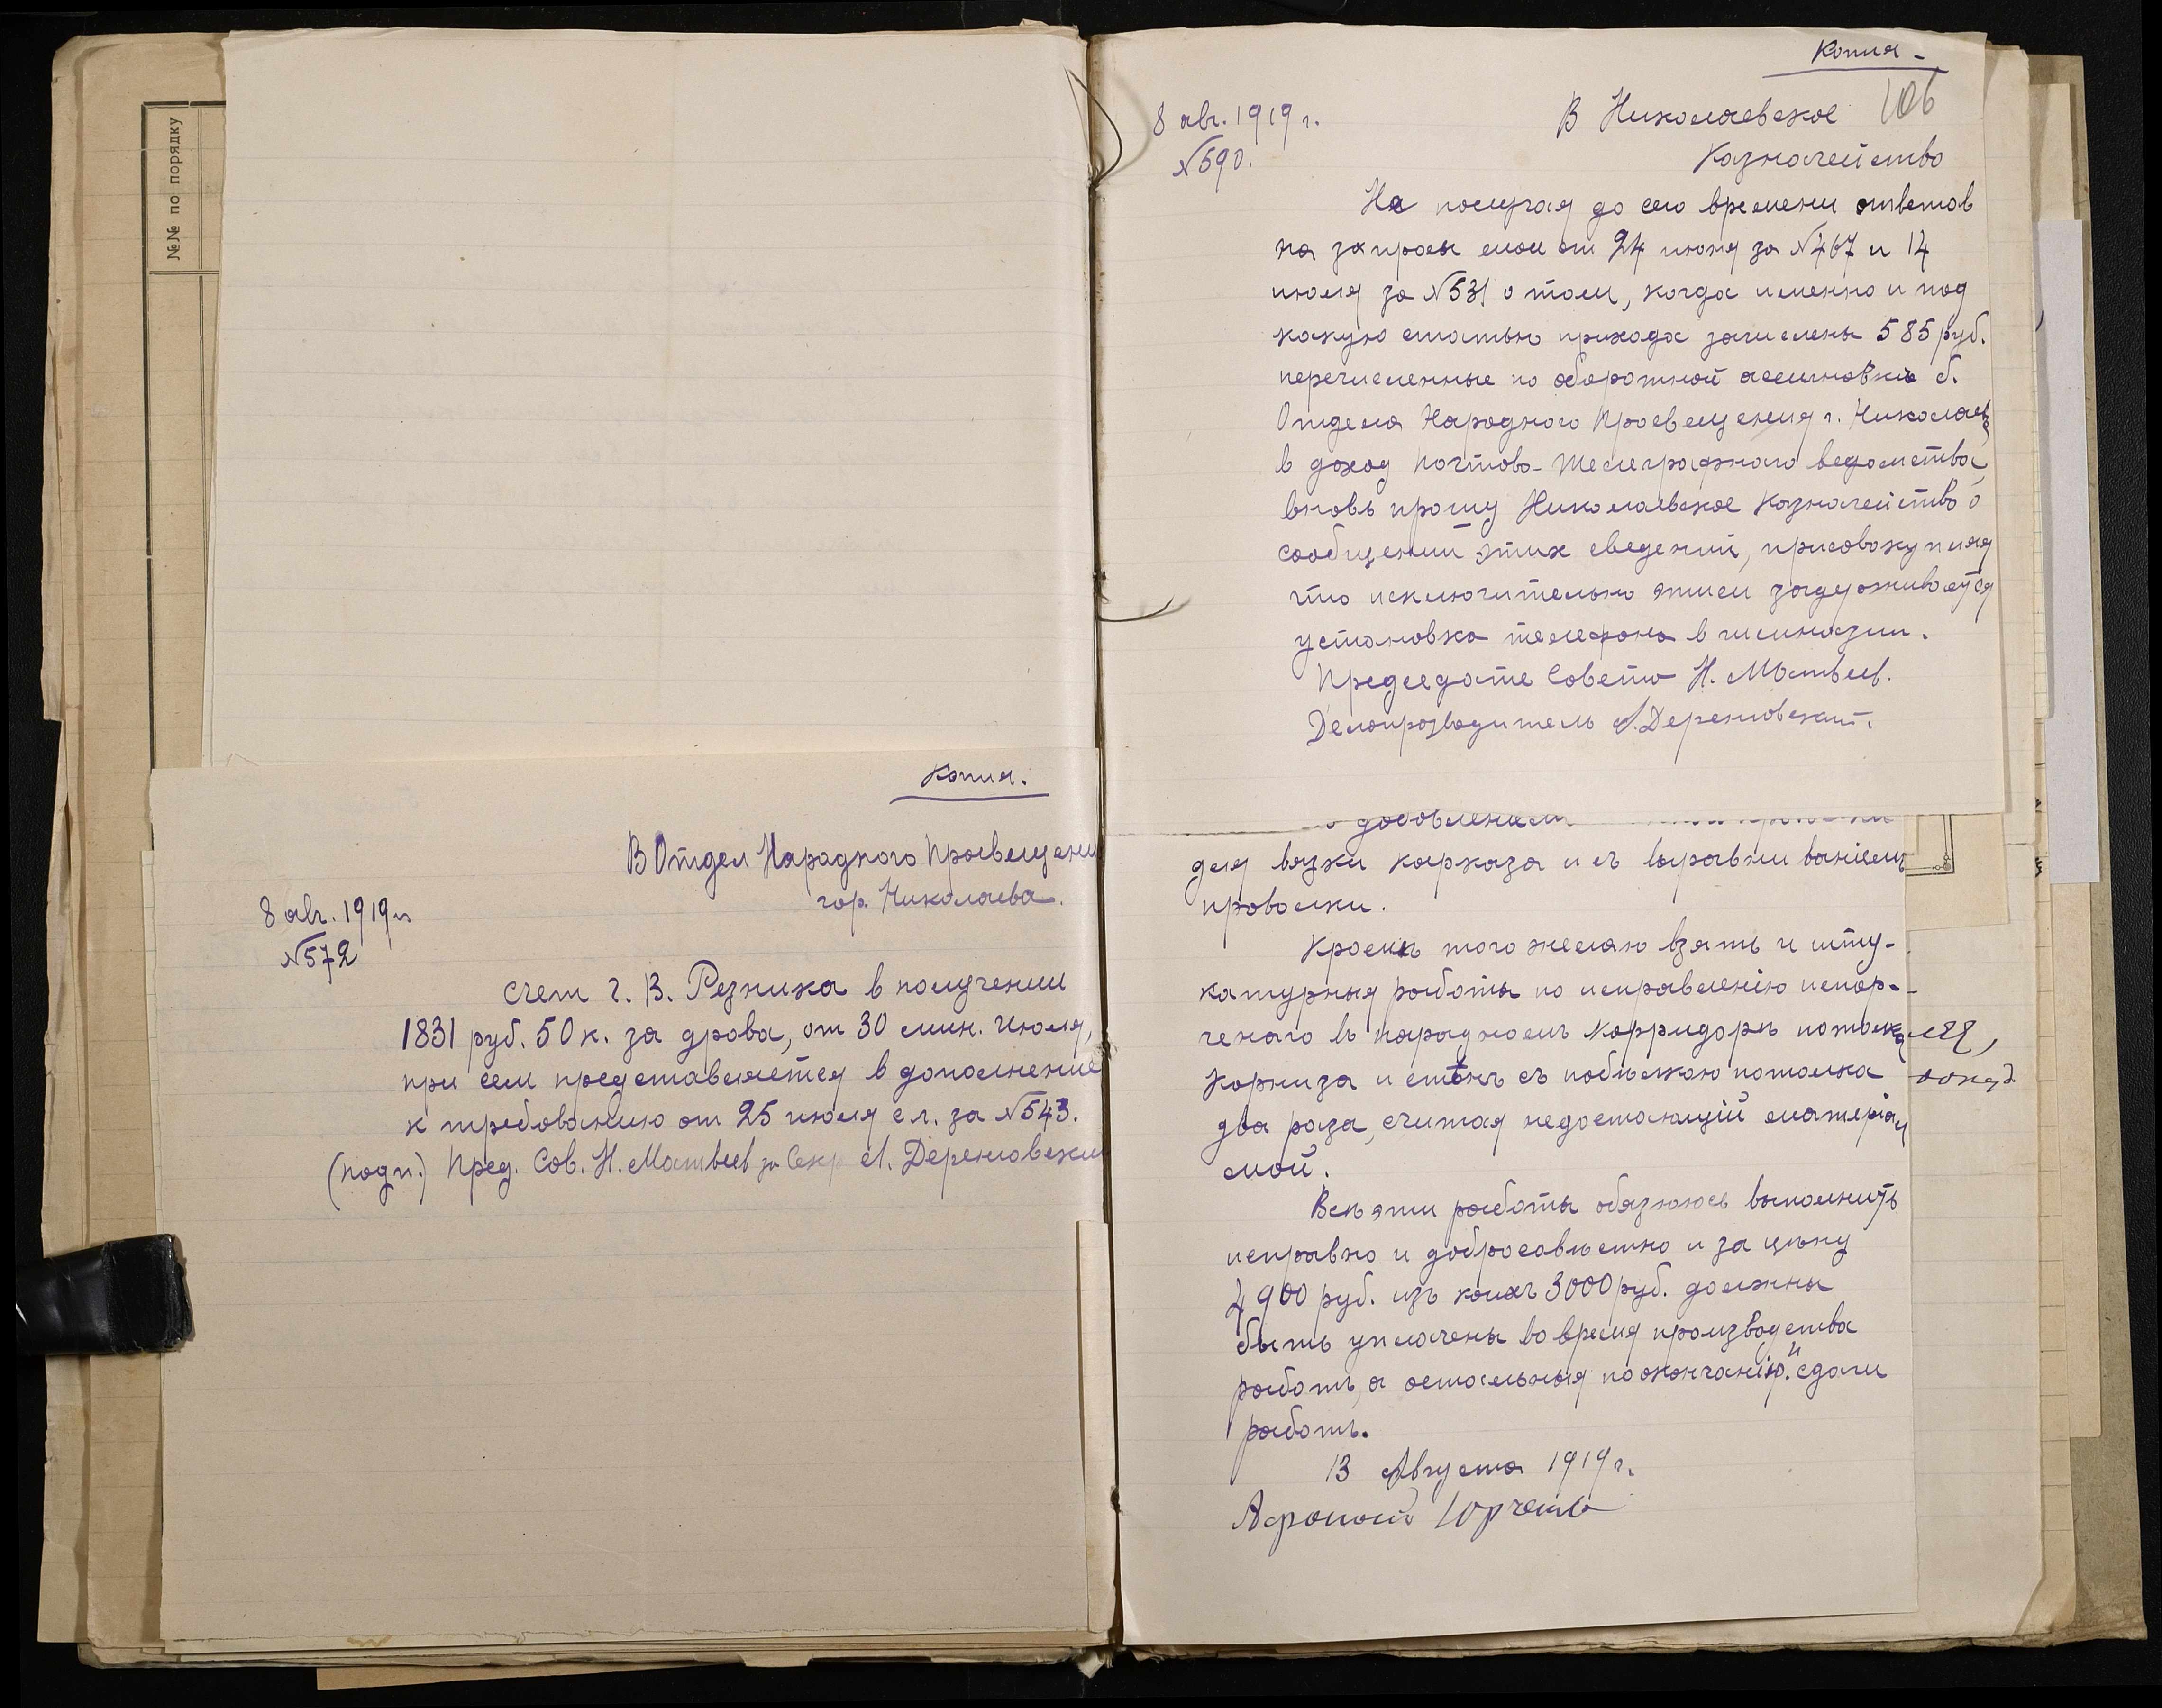 №№ по порядку
Копия.
В Отдел Народного Просвещени
гор. Николаева.
8 авг. 1919 г.
№572
Счет г. В. Резника в получении
1831 руб. 50 к. за дрова, от 30 мин. июля,
при сем представляется в дополнение
к требованию от 25 июля с.г. за №543.
(подп.) Пред. Сов. Н. Матвеев за Секр. А. Дереновски
Копия -
106
8 авг. 1919 г.
№590.
В Николаевское
Казначейство
Не получая до сего времени ответов
на запросы мои от 24 июня за №467 и 14
июля за №531 о том, когда именно и под
какую статью прихода зачислены 585 руб.
перечисленные по оборотной ассигновке б.
Отдела Народного Просвещения г. Николаева
в доход почтово-телеграфного ведомства,
вновь прошу Николаевское Казначейство о
сообщении этих сведений, присовокупляя
что исключительно этим задерживается
установка телефона в гимназии.
Председате Совета Н. Матвеев.
Делопроизводитель А. Дереновский.
с добовлением
для вязки карказа и съ выравниваніем
проволки.
Кромѣ того желаю взять и шту-
катурныя работы по исправленію испор-
ченаго въ парадномъ корридорѣ потолка
корниза и стѣнъ съ побѣлкою потолка
два раза, считая недостающій матеріал
мой.
Всѣ эти работы обязуюсь выполнить
исправно и добросовѣстно и за цѣну
4900 руб. изъ коихъ 3000 руб. должны
быть уплачены во время производства
работъ, а остальныя по окончаніи и сдачи
работъ.
13 Августа 1919 г.